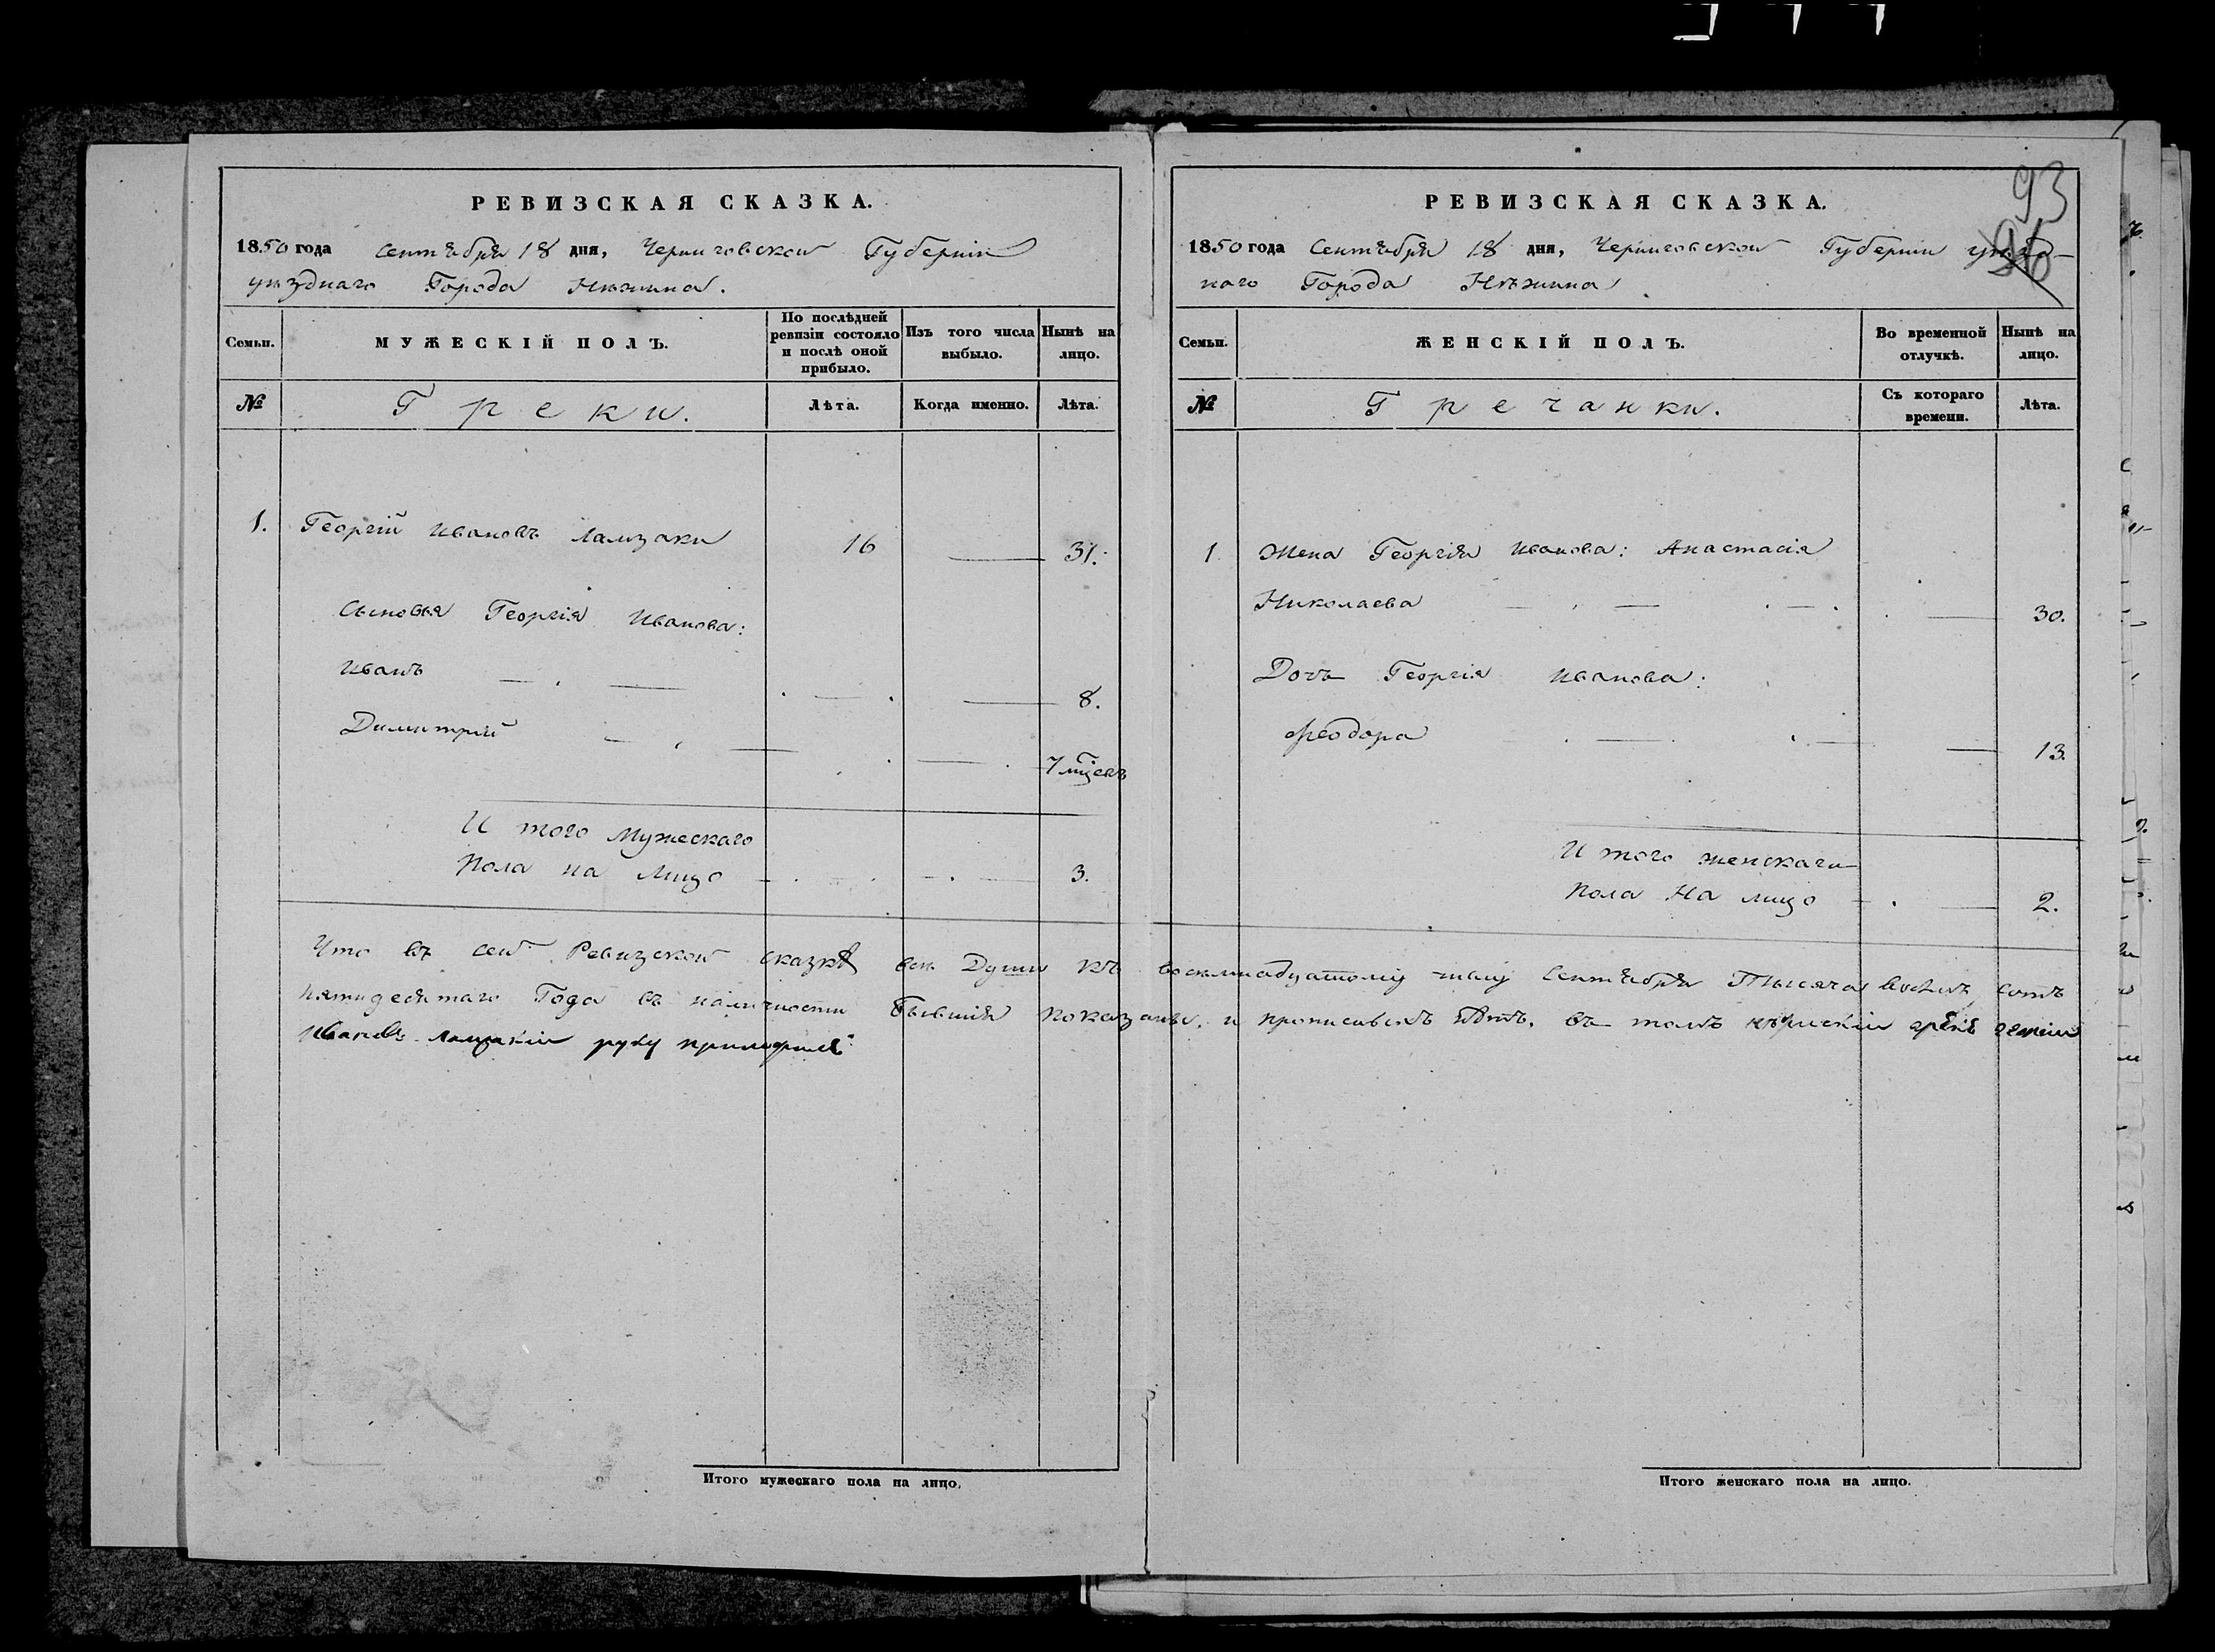 РЕВИЗСКАЯ СКАЗКА.
1850 года Сентября 18 дня, Черниговской Губерніи
уѣзднаго Города Нѣжина.
Семьи.
МУЖЕСКІЙ ПОЛЪ.
По послѣдней ревизіи состояло и послѣ оной прибыло.
Изъ того числа выбыло.
Нынѣ на лицо.
№
Греки.
Лѣта.
Когда именно.
Лѣта.
1. Георгій Ивановъ Ламзаки 16 31.
Сыновья Георгія Иванова:
Иванъ 8.
Димитрій 7 мцевъ
И того Мужескаго
Пола на Лицо 3.
Итого мужескаго пола на лицо.
РЕВИЗСКАЯ СКАЗКА.
93
1850 года Сентября 18 дня, Черниговской Губерніи уѣзд-
наго Города Нѣжина
Семьи.
ЖЕНСКІЙ ПОЛЪ.
Во временной отлучкѣ.
Нынѣ на лицо.
№
Гречанки.
Съ котораго времени.
Лѣта.
1 Жена Георгія Иванова: Анастасія
Николаева 30.
Дочь Георгія Иванова:
Феодора 13.
И того женскаго
Пола на лицо 2.
Что въ сей Ревизской сказкѣ всѣ Души къ восемнадцатому числу Сентября Тысяча восемь сотъ
пятидесятаго Года въ наличности бывшія показаны, и прописныхъ нѣтъ. въ томъ грекъ
Ивановъ руку приложилъ
Итого женскаго пола на лицо.